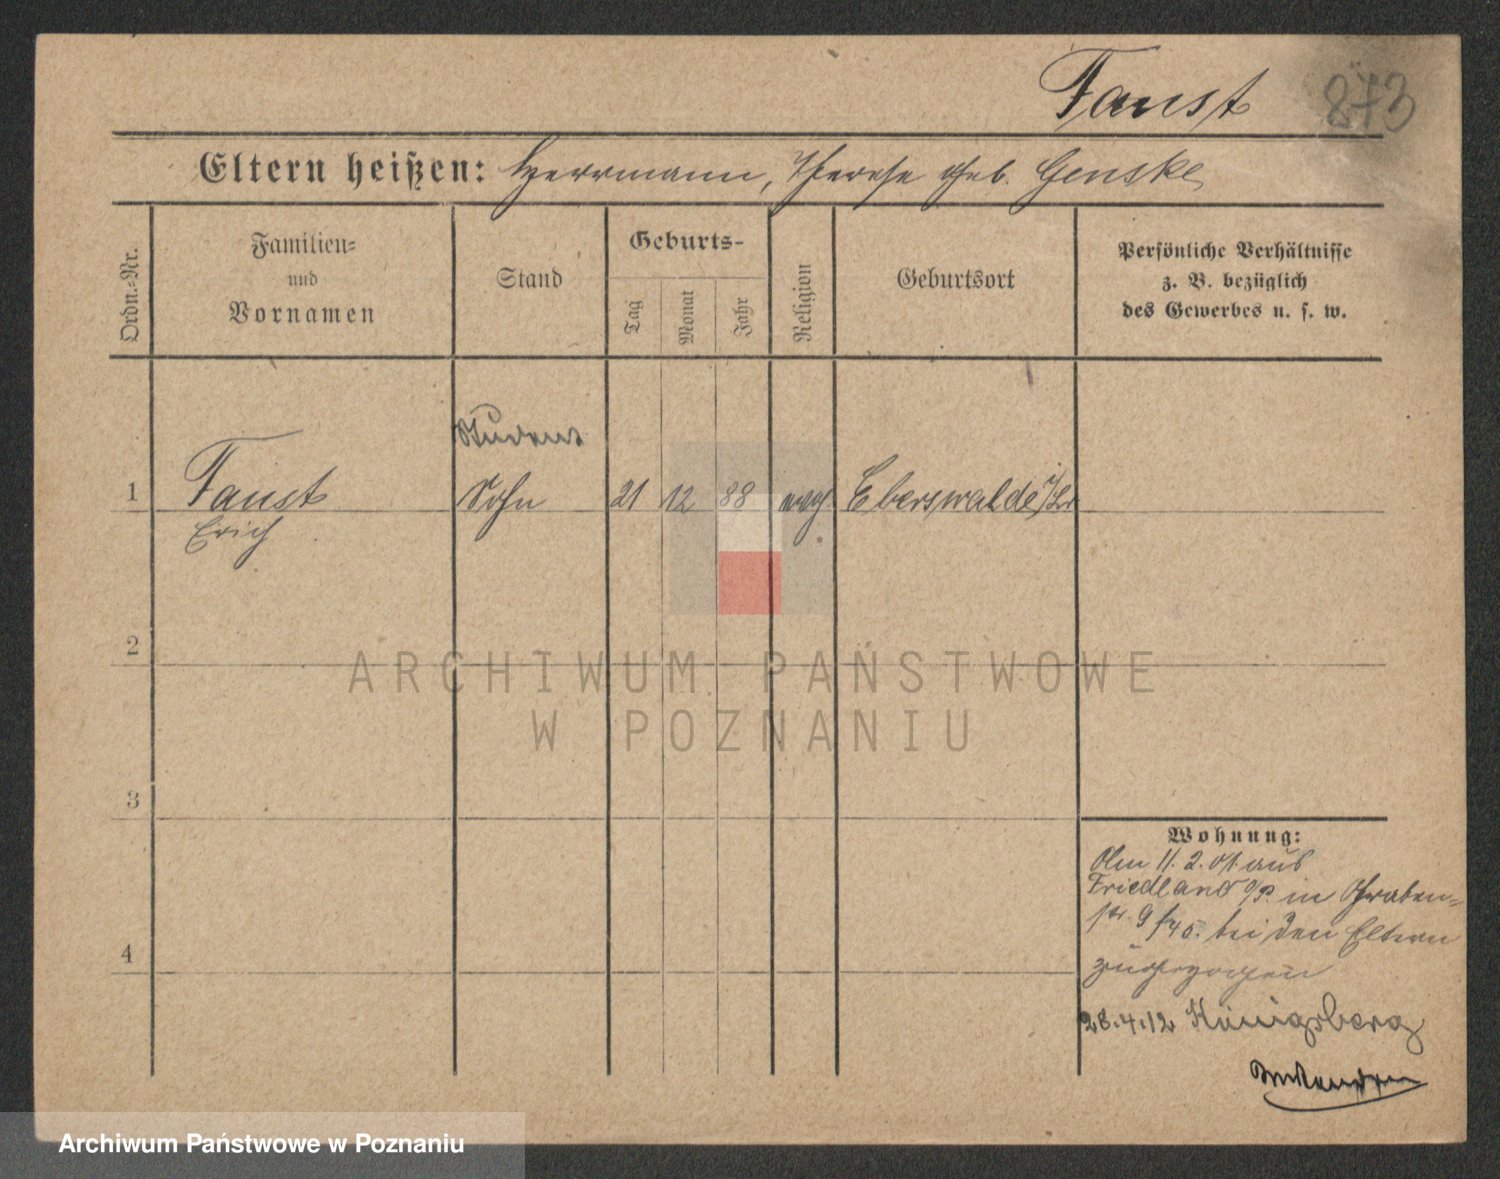 Faust 873
Eltern heißen: Herrmann, Therese geb. Genske
Ordn.-Nr.
Familien-
und
Vornamen
Stand
Geburts-
Tag
Monat
Jahr
Religion
Geburtsort
Persönliche Verhältnisse
z. B. bezüglich
des Gewerbes u. s. w.
Student
1 Faust Sohn 21 12 88 evg. Eberswalde
Erich
2
ARCHIWUM PAŃSTWOWE
W POZNANIU
3
Wohnung:
Am 11. 2. 01 aus
Friedland in Graben-
str. 9 bei den Eltern
4
zugezogen
28.4.12 Königsberg
Archiwum Państwowe w Poznaniu